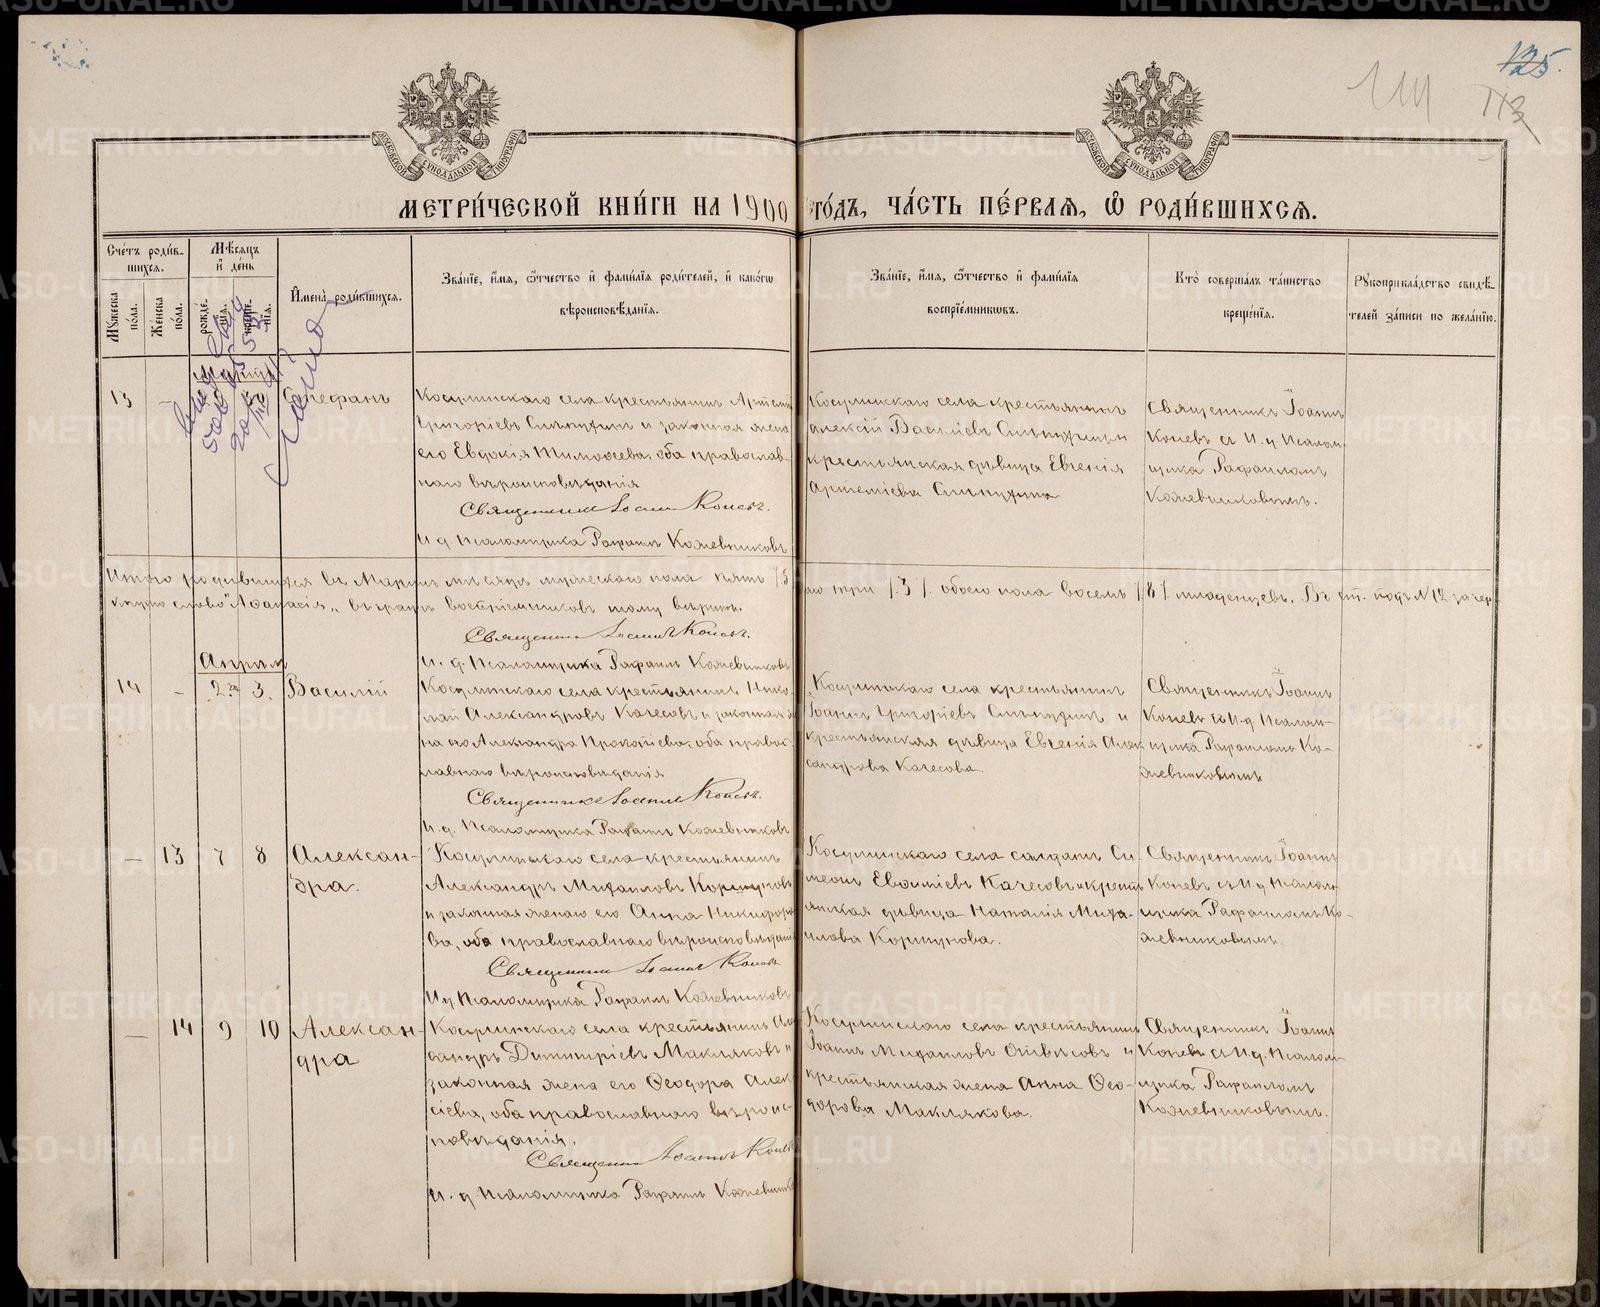 125.
113
МОСКОВСКОЙ СѴНОДАЛЬНОЙ ТИПОГРАФІИ
МОСКОВСКОЙ СѴНОДАЛЬНОЙ ТИПОГРАФІИ
МЕТРИ́ЧЕСКОЙ КНИ́ГИ НА 1900 ГО́ДЪ, ЧА́СТЬ ПЕ́РВАЯ, Ѡ РОДИ́ВШИХСЯ.
Сче́тъ роди́вшихся.
Мѣ́сяцъ и де́нь
Имена̀ роди́вшихся.
Зва́нїе, и́мя, ѻ҆́тчество и фами́лїя роди́телей, и како́гѡ
вѣроисповѣ́данїя.
Зва́нїе, и́мя, ѻ҆́тчество и фами́лїя
воспрїе́мниковъ.
Кто̀ соверша́лъ та́инство
креще́нїя.
Рꙋкоприкла́дство свидѣ́-
телей за́писи по жела́нїю.
Мꙋ́жеска по́ла.
Же́нска по́ла.
рожде́нїя.
креще́нїя.
Мартъ
13 - Стефанъ
Косулинскаго села крестьянинъ Артемій
Григоріевъ Слѣпухинъ и законная жена
его Евдокія Тимоѳеева, оба православ-
наго вѣроисповѣданія
Священникъ Іоаннъ Коневъ.
И д. Псаломщика Рафаилъ Кожевниковъ
Косулинскаго села крестьянинъ
Алексій Василіевъ Слѣпухинъ
крестьянская дѣвица Евгенія
Артеміева Слѣпухина
Священникъ Іоаннъ
Коневъ съ И. д. Псалом-
щика Рафаиломъ
Кожевниковымъ.
Итого родившихся въ Мартѣ мѣсяцѣ мужескаго пола пять /5
три /3/. обоего пола восемь /8/ младенцевъ. Въ ст. подъ № 12 зачер-
кнуто слово "Афанасія" въ графѣ воспріемниковъ тому вѣрить.
Священникъ Іоаннъ Коневъ.
И. д. Псаломщика Рафаилъ Кожевниковъ
Апрѣль
14 - 2го 3. Василій
Косулинскаго села крестьянинъ Нико-
лай Александровъ Качесовъ и законная же-
на его Александра Прокопіева, оба правос-
лавнаго вѣроисповѣданія
Священникъ Іоаннъ Коневъ.
И. д. Псаломщика Рафаилъ Кожевниковъ
Косулинскаго села крестьянинъ
Іоаннъ Григоріевъ Слѣпухинъ и
крестьянская дѣвица Евгенія Алек
сандрова Качесова.
Священникъ Іоаннъ
Коневъ съ И д Псалом-
щика Рафаиломъ Ко-
жевниковымъ
- 13 7 8 Алексан-
дра.
Косулинскаго села крестьянинъ
Александръ Михаиловъ Коршуновъ
и законная жена его Анна Никифоро
ва, оба православнаго вѣроисповѣдан
Священникъ Іоаннъ Коневъ
И д Псаломщика Рафаилъ Кожевниковъ
Косулинскаго села солдатъ Си-
меонъ Евѳиміевъ Качесовъ и кресть
янская дѣвица Наталія Миха-
илова Коршунова.
Священникъ Іоаннъ
Коневъ съ И д Псалом-
щика Рафаиломъ Ко-
жевниковымъ
- 14 9 10 Алексан-
дра
Косулинскаго села крестьянинъ Алек
сандръ Димитріевъ Макляковъ и
законная жена его Ѳеодора Алек
сіева, оба православнаго вѣроис-
повѣданія.
Священникъ Іоаннъ Коневъ
И. д. Псаломщика Рафаилъ Кожевников
Косулинскаго села крестьянинъ
Іоаннъ Михаиловъ Отвѣсовъ и
крестьянская жена Анна Ѳео-
дорова Маклякова.
Священникъ Іоаннъ
Коневъ съ И д. Псалом-
щика Рафаиломъ
Кожевниковымъ.
METRIKI.GASO-URAL.RU